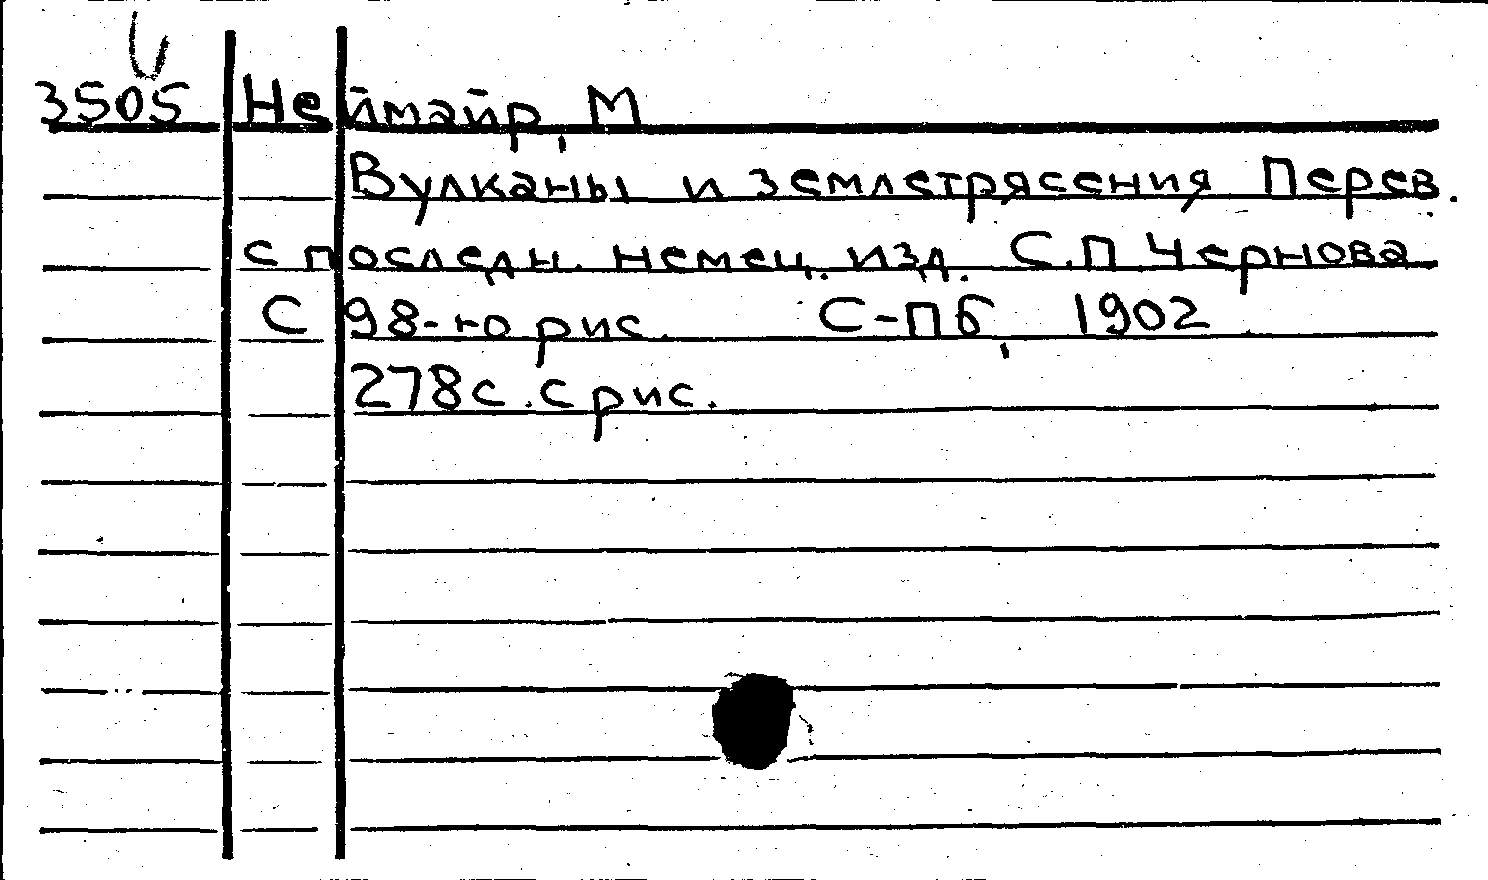 3505 Неймайр, М
Вулканы и землетрясения Перев.
с последн. немец. изд. С.П Чернова
С 98-ю рис. С-Пб, 1902
278с. с рис.